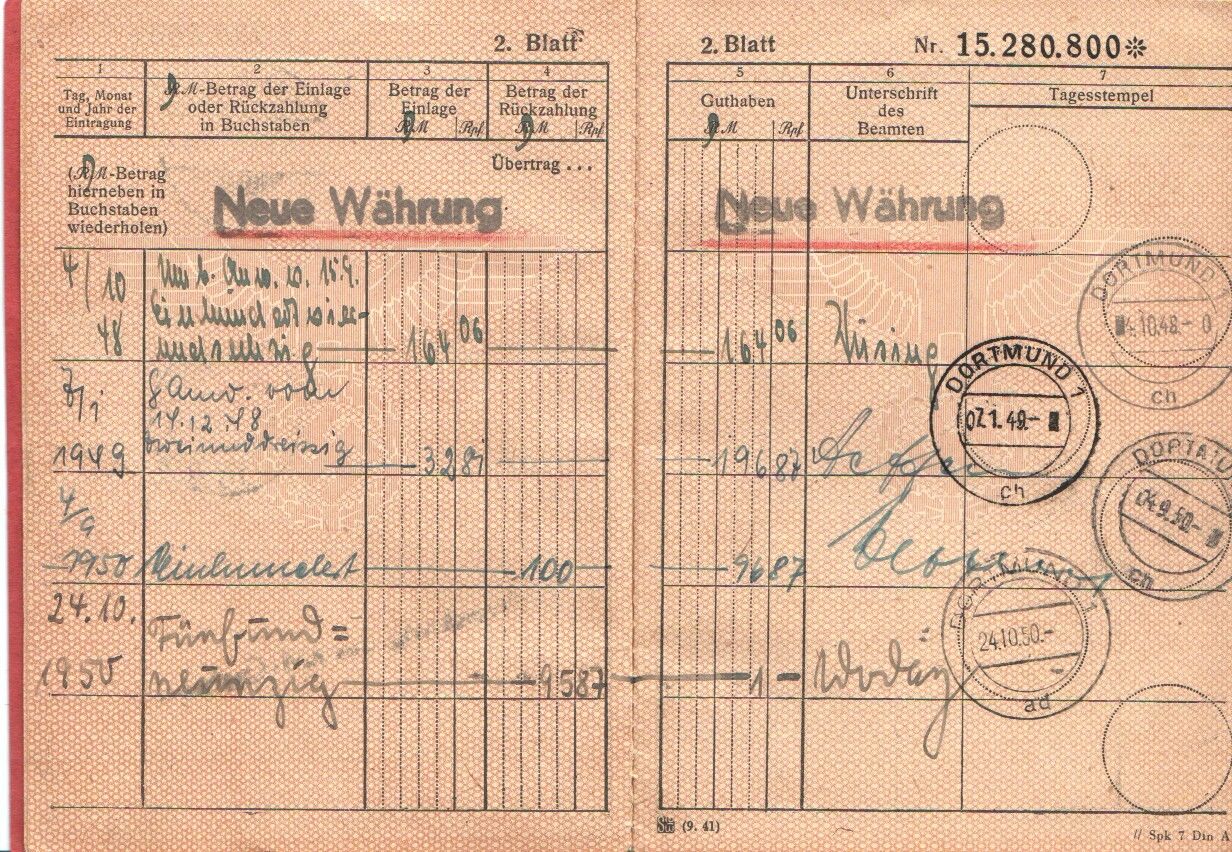 2. Blatt
1
2
3
4
Tag, Monat
und Jahr der
Eintragung
RM-Betrag der Einlage
oder Rückzahlung
in Buchstaben
Betrag der
Einlage
RM Rpf
Betrag der
Rückzahlung
RM Rpf
(RM-Betrag
hierneben in
Buchstaben
wiederholen)
Übertrag ...
Neue Währung
4/10
48
Einhundertvier-
undsechzig
164 06
7/1
1949
vom
14.12.48
zweiunddreißig
32 81
4/9
1950 Einhundert 100
24.10.
1950
Fünfund=
neunzig 95 87
2. Blatt
Nr. 15.280.800*
5
6
7
Guthaben
RM Rpf
Unterschrift
des
Beamten
Tagesstempel
Neue Währung
164 06
DORTMUND
4.10.48.-0
ch
196 87
DORTMUND 1
07.1.49.-
ch
96 87
04.9.50.-
ch
1 -
DORTMUND 1
24.10.50.-
ad
(9. 41)
// Spk 7 Din A